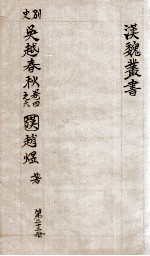 漢魏叢書
別史
吳越春秋 卷四之六 漢趙煜 著
第二十三冊